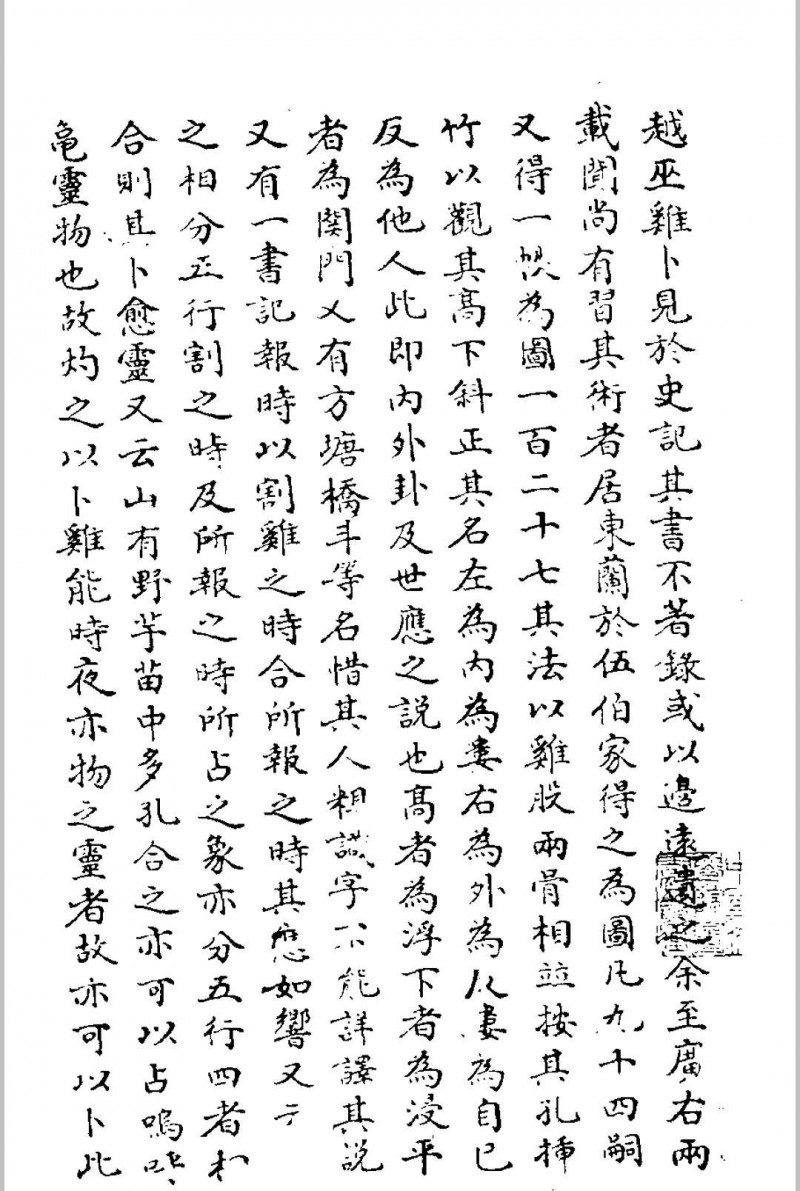 越巫雞卜見於史記其書不著錄或以邊遠遺之余至廣右兩
載聞尚有習其術者居東蘭於伍伯家得之為圖凡九十四嗣
又得一帙為圖一百二十七其法以雞股兩骨相竝按其孔插
竹以觀其高下斜正其名左為內為婁右為外為人婁為自己
反為他人此即內外卦及世應之說也高者為浮下者為浸平
者為關門又有方塘橋斗等名惜其人粗識字不能詳譯其說
又有一書記報時以割雞之時合所報之時其應如響又云
之相分五行割之時及所報之時所占之象亦分五行四者相
合則其卜愈靈又云山有野芋苗中多孔合之亦可以占嗚呼
黾靈物也故灼之以卜雞能時夜亦物之靈者故亦可以卜此